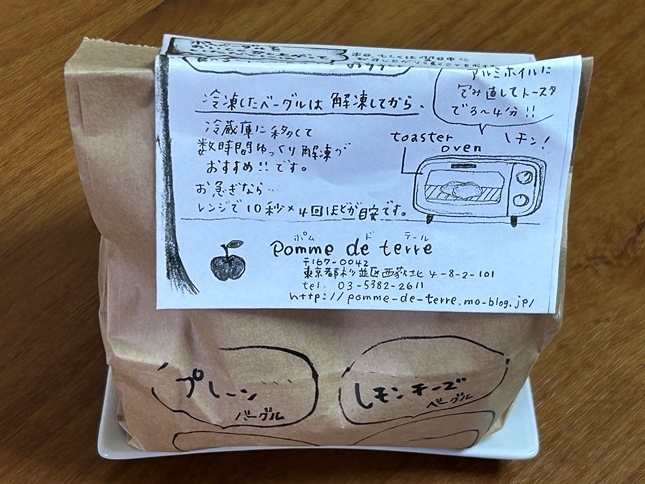 アルミホイルに
包み直してトースタ
で3〜4分!!
チン!
toaster
oven
冷凍したベーグルは解凍してから、
冷蔵庫に移して
数時間ゆっくり解凍が
おすすめ!!です。
お急ぎなら…
レンジで10秒×4回ほどが目安です。
ポム ド テール
pomme de terre
〒167-0042
東京都杉並区西荻北4-8-2-101
tel. 03-5382-2611
http://pomme-de-terre.mo-blog.jp/
プレーン
ベーグル
レモンチーズ
ベーグル